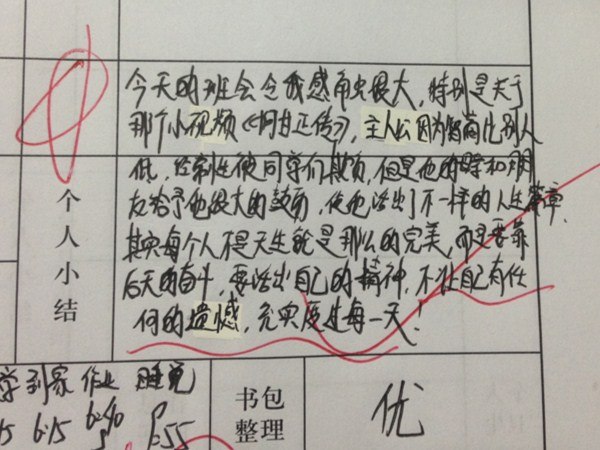 今天的班会令我感触很大，特别是关于
那个小视频《阿甘正传》，主人公因为智商比别人
低，经常性被同学们欺负，但是他的母亲和朋
友给予他很大的鼓励，使他活出了不一样的人生篇章.
其实每个人不是天生就是那么的完美，而是要靠
后天的奋斗，要活出自己的精神，不让自己有任
何的遗憾，充实度过每一天！
个人小结
学到家 作业 睡觉
15 6:15 6:40 :55
书包
整理
优